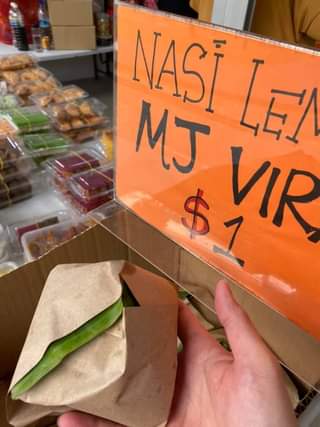 NASI LEM
MJ VIRA
$1